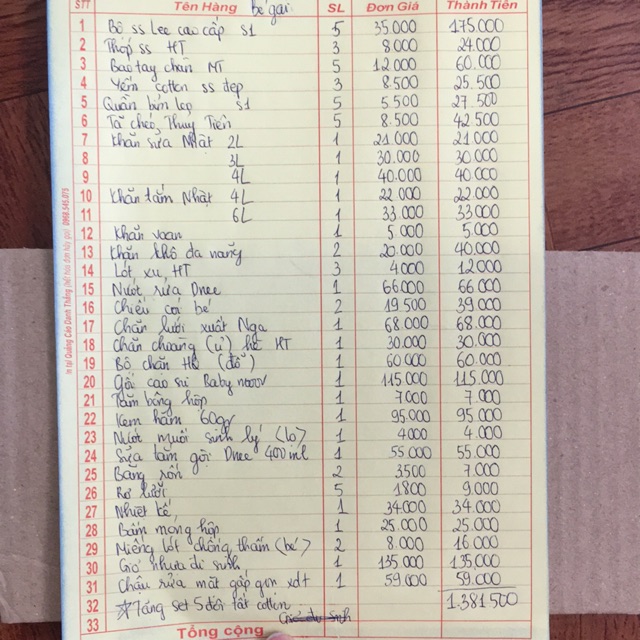 STT Tên Hàng bé gái SL Đơn Giá Thành Tiền
1 Bộ ss Lee cao cấp S1 5 35.000 175.000
2 Thóp ss HT 3 8000 24.000
3 Bao tay chân NT 5 12000 60.000
4 Yếm cotton ss đẹp 3 8.500 25.500
5 Quần bỉm lop S1 5 5.500 27.500
6 Tã chéo, Thuỷ Tiên 5 8.500 42.500
7 Khăn sữa Nhật 2L 1 21.000 21.000
8 3L 1 30.000 30.000
9 4L 1 40.000 40.000
10 Khăn tắm Nhật 4L 1 22.000 22.000
11 6L 1 33.000 33.000
12 Khăn voan 1 5 000 5.000
13 Khăn khô đa năng 2 20.000 40.000
14 Lót xu, HT 3 4000 12000
15 Nước rửa Dnee 1 66000 66 000
16 Chiếu cói bé 2 19.500 39.000
17 Chăn lưới xuất Nga 1 68.000 68.000
18 Chăn choàng (ủ) HT 1 30.000 30.000
19 Bộ chăn HQ (đỏ) 1 60000 60.000
20 Gối cao su Baby 1 115.000 115.000
21 Tăm bông hộp 1 7000 7.000
22 Kem hăm 60gr 1 95.000 95.000
23 Nước muối sinh lý (lo) 1 4000 4.000
24 Sữa tắm gội Dnee 400ml 1 55.000 55.000
25 Băng rốn 2 3500 7.000
26 Rơ lưỡi 5 1800 9.000
27 Nhiệt kế, 1 34000 34.000
28 Bấm móng hộp 1 25.000 25.000
29 Miếng lót chống thấm (bé) 2 8.000 16.000
30 Giỏ nhựa đi sinh 1 135 000 135.000
31 Chậu rửa mặt gấp gọn xdt 1 59000 59.000
32 *Tặng set 5 đôi tất cotton 1.381500
33
Tổng cộng
In tại Quảng Cáo Danh Thắng (hết hóa đơn hãy gọi: 0968.545.075